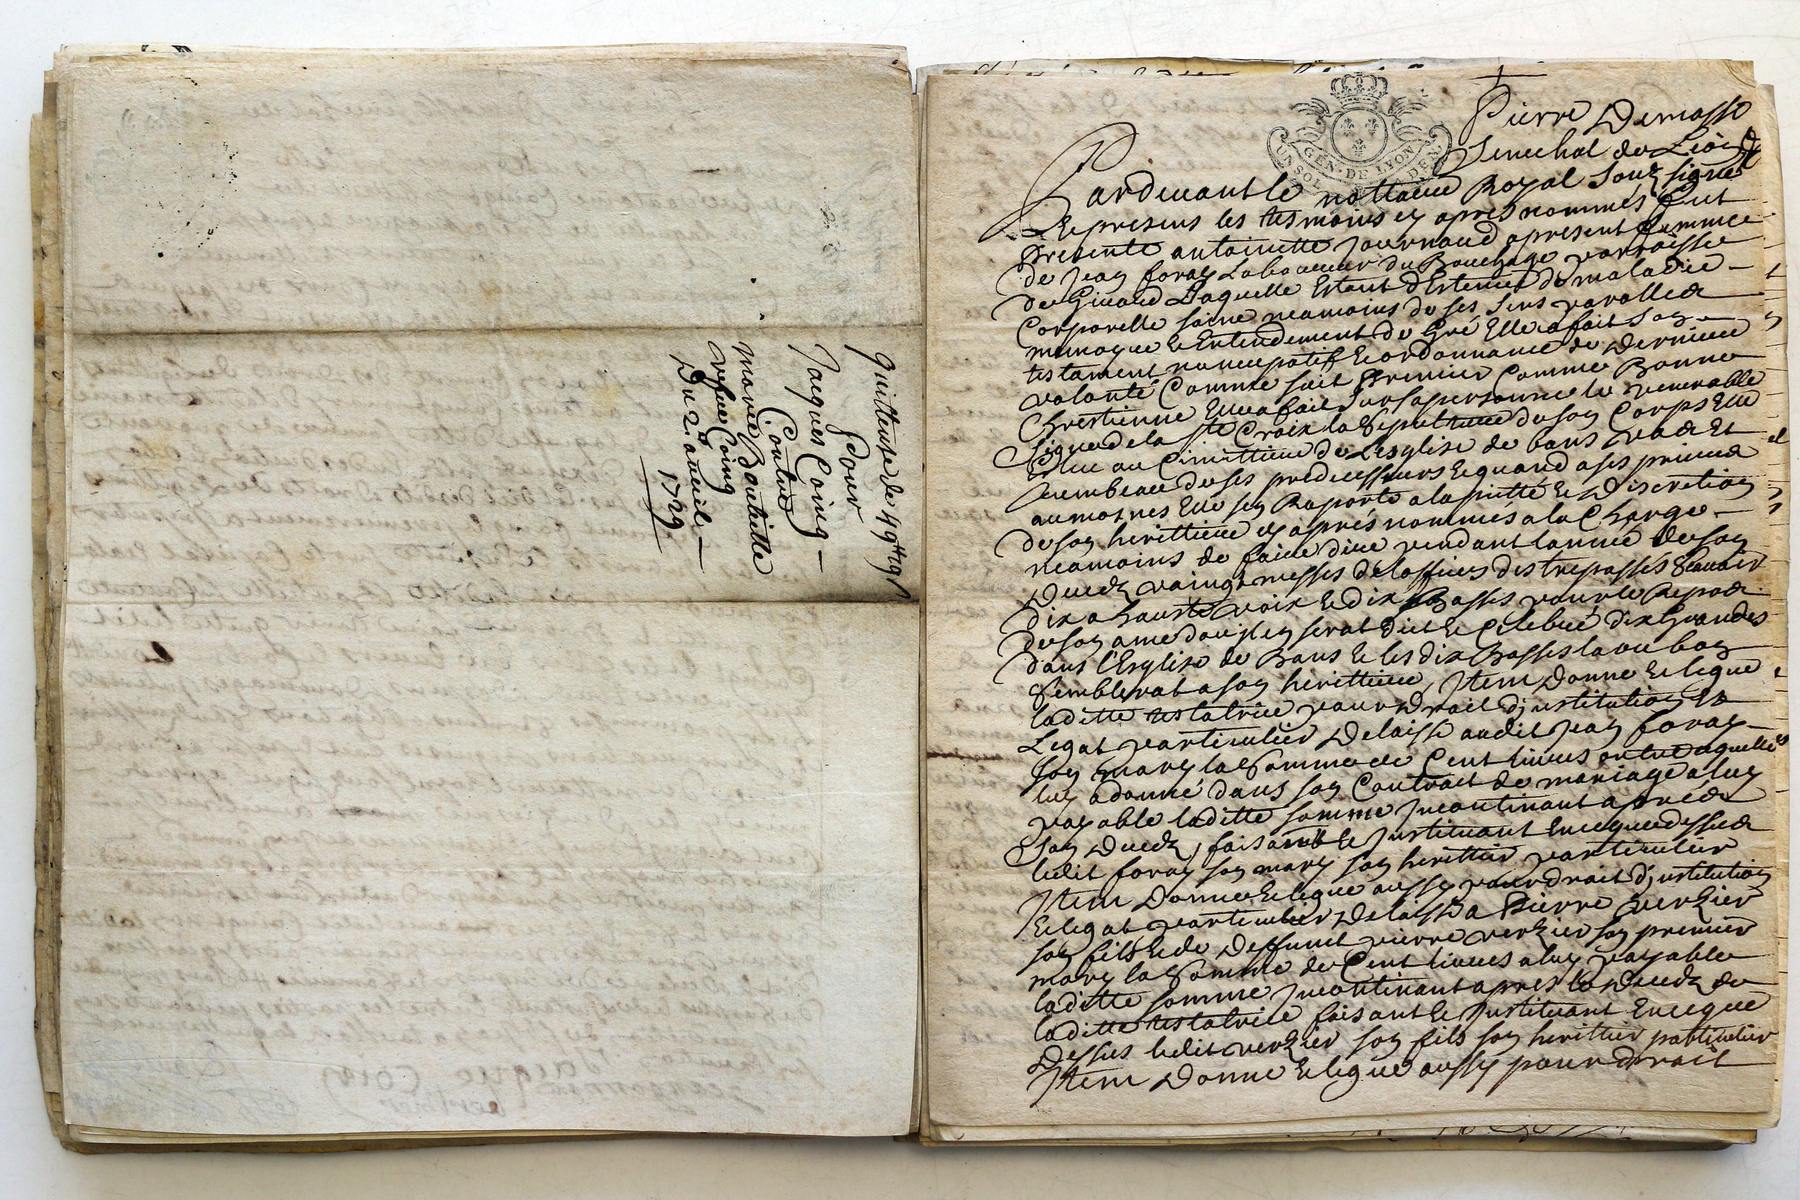 quittance de 49tt 19s
Pour
Jaques Coing —
Contre
marie Bouteille
vefue Coing
Du 2e. aureil —
1729
Pierre Demasso
Senechal de Lion
GEN. DE LYON
UN SOL DEN.
Pardeuant le nottaire Royal Souzsigné
Et presens les tesmoins cy apres nommés fut
presente antoinette Journoud apresent femme
de Jean foray Laboureur du Bouchage parroisse
de Laquelle Estant d'Estenue de maladie —
Corporelle saine neamoins de ses sens parolle &
memoyre & Entendement de Gré Elle a fait son —
testament noncupatif & ordonnance de derniere
volonté Comme suit premier Comme Bonne
Chrestienne Elle a fait sur sa personne le venerable
signe de la Ste Croix la sepulture de son Corps Elle
Elue au Cimettiere de L'esglise de bans au
tembeau de ses predecesseurs & quand a ses prieres
aumosnes Elle s'en Raporte a la pietté & Discretion
de son herittiere cy aprés nommés a la Charge —
neamoins de faire dire pendant l'annee de son
Decedz vaingt messes de l'office des trepassés scauoir
dix a hauste voix & dix Basses pour le Repos
de son ame dou il en serat dict & Celebré dix Grandes
dans l'Esglise de Bans & les dix Basses la ou bon
semblerat a son herittiere, Item Donne & legue
laditte testatrice pour droit d'institution &
Legat particulier Delaisse audit Jean foray —
son mary la somme de Cent liures outre
luy a donné dans son Contrait de mariage a luy
payable laditte somme Incontinant apres
son Decedz, faisant & Instituant En ce que dessus
ledit foray son mary son herittier particulier
Item Donne & legue aussy pour droit d'institution
& legat particulier Delaisse a Pierre verzier
son fils & de deffunt pierre verzier son premier
mary la somme de Cent liures a luy payable
laditte somme Incontinant apres le Decedz de
laditte testatrice faisant & Instituant En ce que
Dessus ledit verzier son fils son herittier particulier
Item Donne & legue aussy pour droit